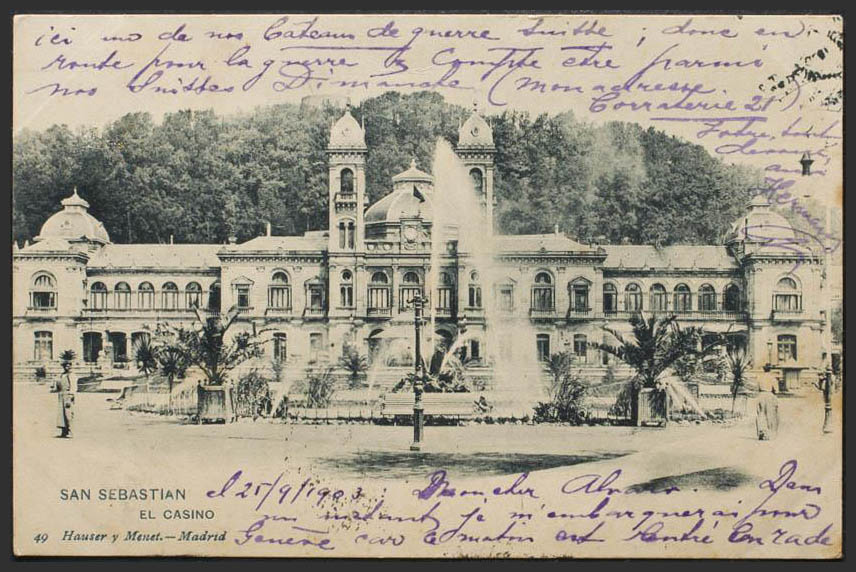 ici un de nos bateaux de guerre Suisse ; donc en
route pour la guerre & Compte être parmi
nos Suisses Dimanche (Mon adresse
Corraterie 21)
Votre tout
ami
SAN SEBASTIAN el 25/9/1903 Mon cher Alvaro. Dans
EL CASINO un instant je m'embarquerai pour
49 Hauser y Menet.—Madrid Genève car ce matin est rentré en rade